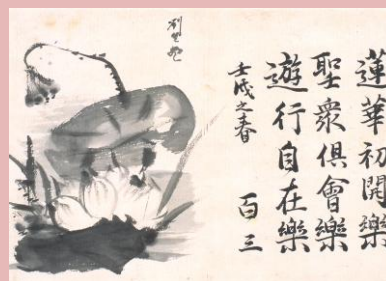 蓮華初開樂
聖衆俱會樂
遊行自在樂
壬戌之春
百三